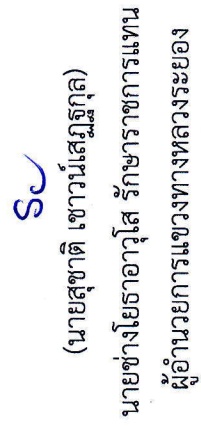 (นายสุชาติ เชาวน์เสฏฐกุล)
นายช่างโยธาอาวุโส รักษาราชการแทน
ผู้อำนวยการแขวงทางหลวงระยอง